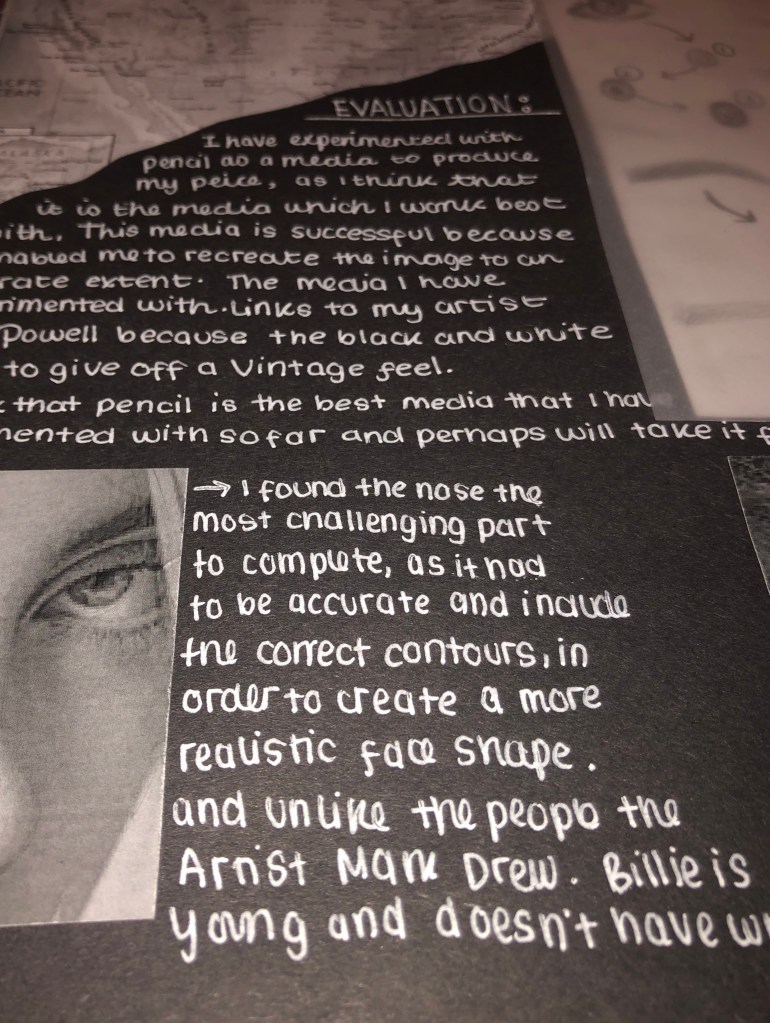 CIFIC
CEAN
ALASKA
EVALUATION:
I have experimented with
pencil as a media to produce
my peice, as I think that
it is the media which I work best
ith. This media is successful because
nabled me to recreate the image to an
rate extent. The media I have
rimented with. Links to my artist
Powell because the black and white
to give off a Vintage feel.
that pencil is the best media that I hav
mented with so far and perhaps will take it f
→ I found the nose the
most challenging part
to complete, as it had
to be accurate and include
the correct contours, in
order to create a more
realistic face shape.
and unlike the people the
Artist Mark Drew. Billie is
young and doesn't have wr